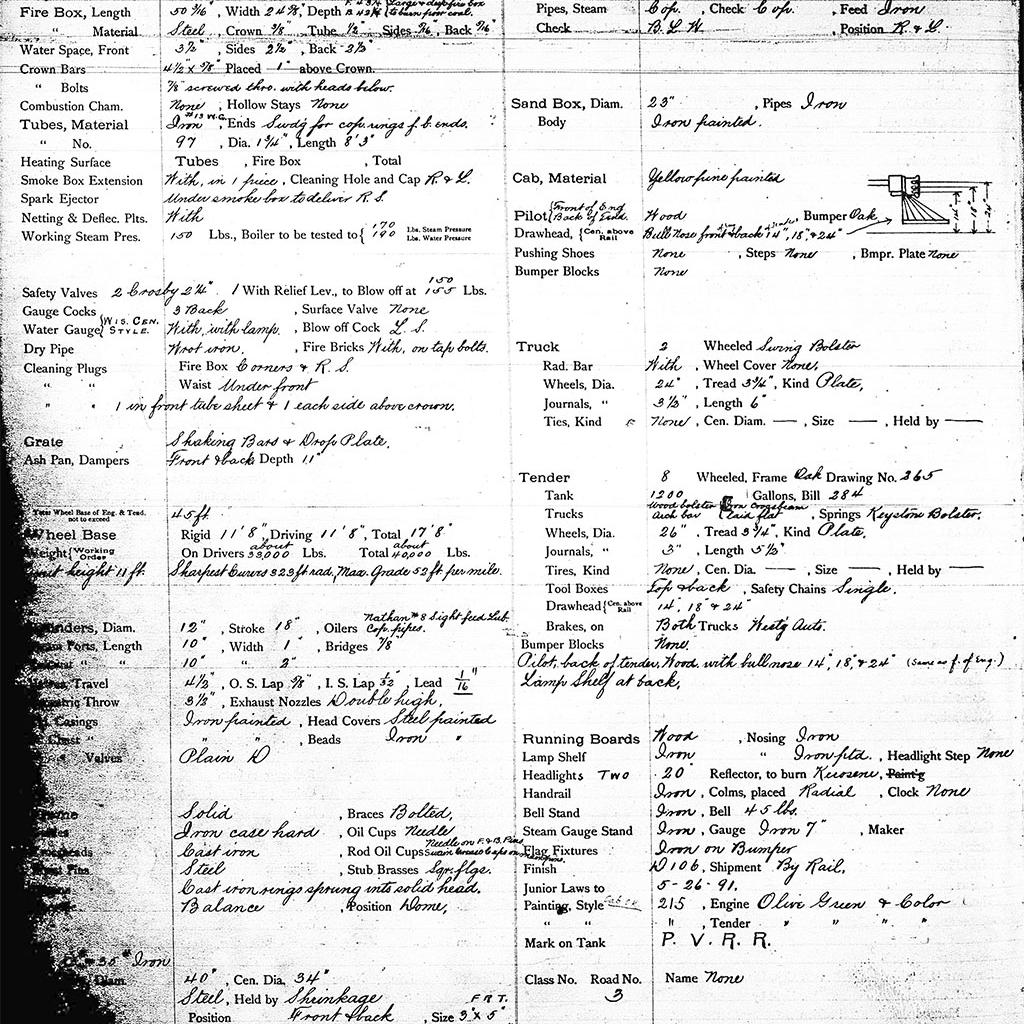 Fire Box, Length 50 9/16", Width 24 7/8", Depth F. 43 3/4 B. 42 3/4" Large & deep fire box to burn poor coal.
" Material Steel, Crown 3/8", Tube 1/2" Sides 5/16, Back 5/16"
Water Space, Front 3 1/2", Sides 2 1/2", Back 2 1/2"
Crown Bars 4 1/2" x 5/8" Placed 1" above Crown.
" Bolts 7/8" screwed thro. with heads below.
Combustion Cham. None, Hollow Stays None
Tubes, Material Iron #13 W.G., Ends Swdg for cop. rings f. b. ends.
" No. 97, Dia. 1 3/4", Length 8' 3"
Heating Surface Tubes , Fire Box , Total
Smoke Box Extension With, in 1 piece, Cleaning Hole and Cap R. & L.
Spark Ejector Under smoke box to deliver R. S.
Netting & Deflec. Plts. With
Working Steam Pres. 150 Lbs., Boiler to be tested to { 170 Lbs. Steam Pressure 190 Lbs. Water Pressure
Safety Valves 2 Crosby 2 1/4" 1 With Relief Lev., to Blow off at 150 155 Lbs.
Gauge Cocks 3 Back , Surface Valve None
Water Gauge { Wis. Cen. Style. With, with lamp. , Blow off Cock L. S.
Dry Pipe Wrot iron. , Fire Bricks With, on tap bolts.
Cleaning Plugs Fire Box Corners & R. S.
" " Waist Under front
" " 1 in front tube sheet & 1 each side above crown.
Grate Shaking Bars & Drop Plate.
Ash Pan, Dampers Front & back Depth 11"
Total Wheel Base of Eng. & Tend. not to exceed 45 ft.
Wheel Base Rigid 11' 8", Driving 11' 8", Total 17' 8"
Weight { Working Order On Drivers about 33,000 Lbs. Total about 40,000 Lbs.
height 11 ft. Sharpest Curves 323 ft rad., Max. Grade 52 ft per mile.
Cylinders, Diam. 12", Stroke 18", Oilers Nathan #8 Sight feed Lub. Cop. pipes.
Steam Ports, Length 10", Width 1", Bridges 7/8
" 10" " 2"
Valves, Travel 4 1/2, O. S. Lap 5/8", I. S. Lap 1/32", Lead 1/16"
Eccentric Throw 3 1/2", Exhaust Nozzles Double high,
Casings Iron painted, Head Covers Steel painted
Chest " " " , Beads Iron "
" Valves Plain D
Frame Solid , Braces Bolted,
Iron case hard , Oil Cups Needle
Cast iron , Rod Oil Cups Needle on F. & B. Pins
Steel , Stub Brasses Sqr. flgs.
Cast iron rings sprung into solid head.
Balance , Position Dome,
Iron
Diam. 40", Cen. Dia. 34"
Steel, Held by Shrinkage
Position Front & back F R T. , Size 3" x 5"
Pipes, Steam Cop. , Check Cop. , Feed Iron
Check B. L. W. , Position R. & L.
Sand Box, Diam. 23" , Pipes Iron
Body Iron painted.
Cab, Material Yellow pine painted
Pilot { Front of Eng Back of Tend. Wood , Bumper Oak
Drawhead, { Cen. above Rail Bull nose front & back 14", 18" & 24"
14" 18" 24"
Pushing Shoes None , Steps None , Bmpr. Plate None
Bumper Blocks None
Truck 2 Wheeled Swing Bolster
Rad. Bar With , Wheel Cover None,
Wheels, Dia. 24" , Tread 3 3/4", Kind Plate,
Journals, " 3 1/2" , Length 6"
Ties, Kind None , Cen. Diam. — , Size — , Held by —
Tender 8 Wheeled, Frame Oak Drawing No. 265
Tank 1200 Gallons, Bill 284
Trucks Wood bolster Iron crossbeam Arch bar laid flat , Springs Keystone Bolster.
Wheels, Dia. 26" , Tread 3 3/4", Kind Plate.
Journals, " 3" , Length 5 1/2"
Tires, Kind None , Cen. Dia. — , Size — , Held by —
Tool Boxes Top & back , Safety Chains Single.
Drawhead { Cen. above Rail 14", 18" & 24"
Brakes, on Both Trucks Westg Auto.
Bumper Blocks None.
Pilot, back of tender, Wood with bull nose 14", 18", & 24" (Same as f. of Eng.)
Lamp Shelf at back,
Running Boards Wood , Nosing Iron
Lamp Shelf Iron " Iron ptd. , Headlight Step None
Headlights TWO 20" Reflector, to burn Kerosene, Paint'g
Handrail Iron , Colms, placed Radial , Clock None
Bell Stand Iron , Bell 45 lbs.
Steam Gauge Stand Iron , Gauge Iron 7" , Maker
Flag Fixtures Iron on Bumper
Finish D 106 , Shipment By Rail,
Junior Laws to 5-26-91.
Painting, Style 215 , Engine Olive Green & Color
" " " , Tender " " " "
Mark on Tank P. V. R. R.
Class No. Road No. Name None
3